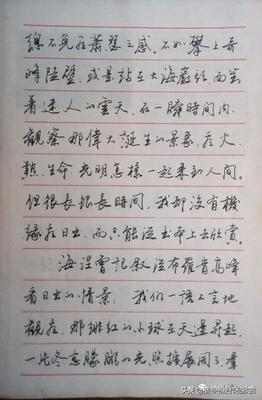 總不免有蕭瑟之感。不如攀上奇
峰陡壁，或是站在大海巖頭，面對
着迷人的雲天，在一瞬時間内，
觀察那偉大誕生的景象，看火、
熱、生命、光明怎樣一起來到人間。
但很長很長時間，我却没有機
緣看日出，而只能從书本上去欣賞。
海涅曾記叙從布羅肯高峰
看日出的情景：我們一語不言地
觀看，那緋紅的小球在天邊昇起，
一片冬意朦朧的光照擴展開了，羣